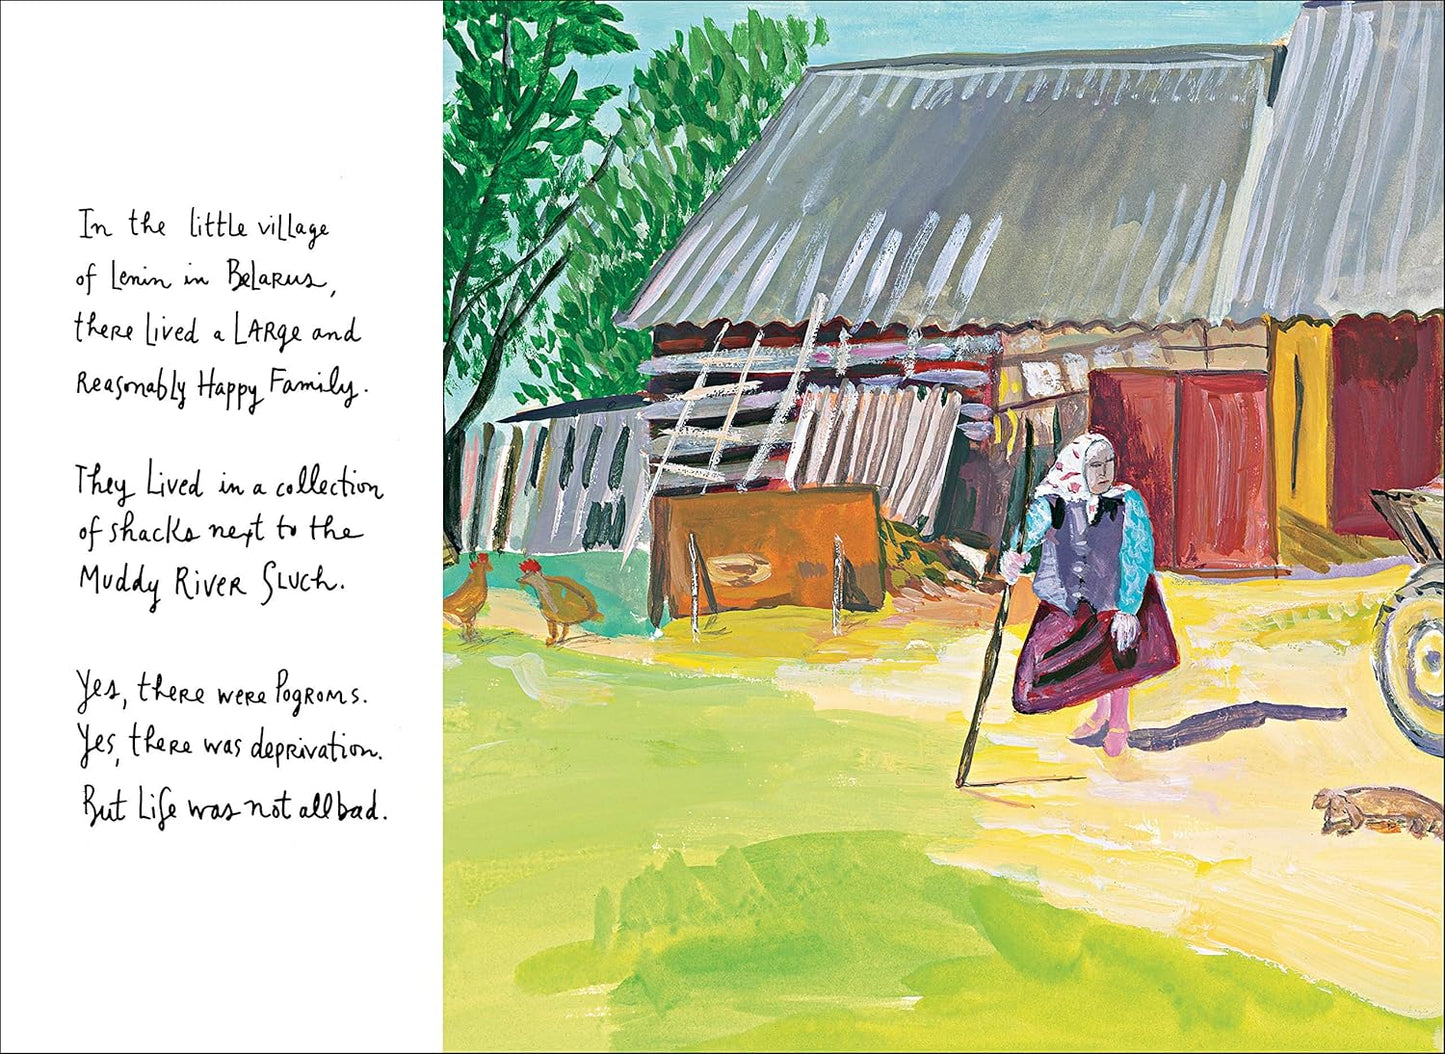 In the little village
of Lenin in Belarus,
there Lived a LARge and
Reasonably Happy Family.
They Lived in a collection
of shacks next to the
Muddy RIVER Sluch.
Yes, there were Pogroms.
Yes, there was deprivation.
But Life was not all bad.